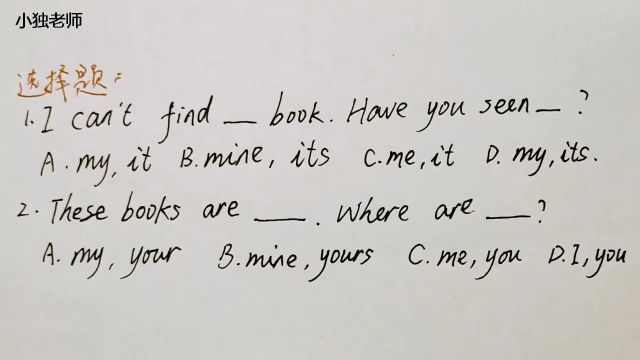 小独老师
选择题:
1. I can't find __ book. Have you seen __ ?
A. my, it B. mine, its C. me, it D. my, its.
2. These books are ___. Where are ___?
A. my, your B. mine, yours C. me, you D. I, you